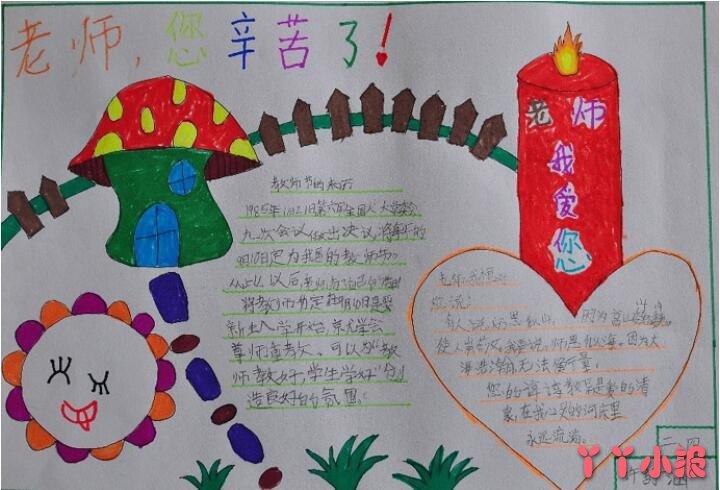 老师,您辛苦了!
老师
我
爱
您
教师节的来历
1985年1月21日第六届全国人大常委会
九次会议做出决议,将每年的
9月10日定为我国的教师节。
从此以后,老师有了自己的节日
将教师节定在9月10日是
新生入学开始,
尊师重教 可以为"教
师教好,学生学好"创
造良好的氛围。
老师,我想
您说:
有人说师恩似山,因为高山
使人崇 我要说,师恩似海,因为大
海浩 无法 量。
您的谆谆教 是我的清
泉,在我 的河床里
永远流淌。
二 四
丫丫小报